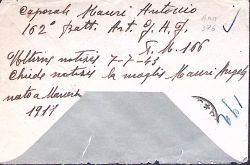 Caporale Mauri Antonio
162° Batt. Art. G. A. F.
P. M. 166
Ultime notizie 7-7-43
Chiede notizie la moglie Mauri Angela
nato a
1911